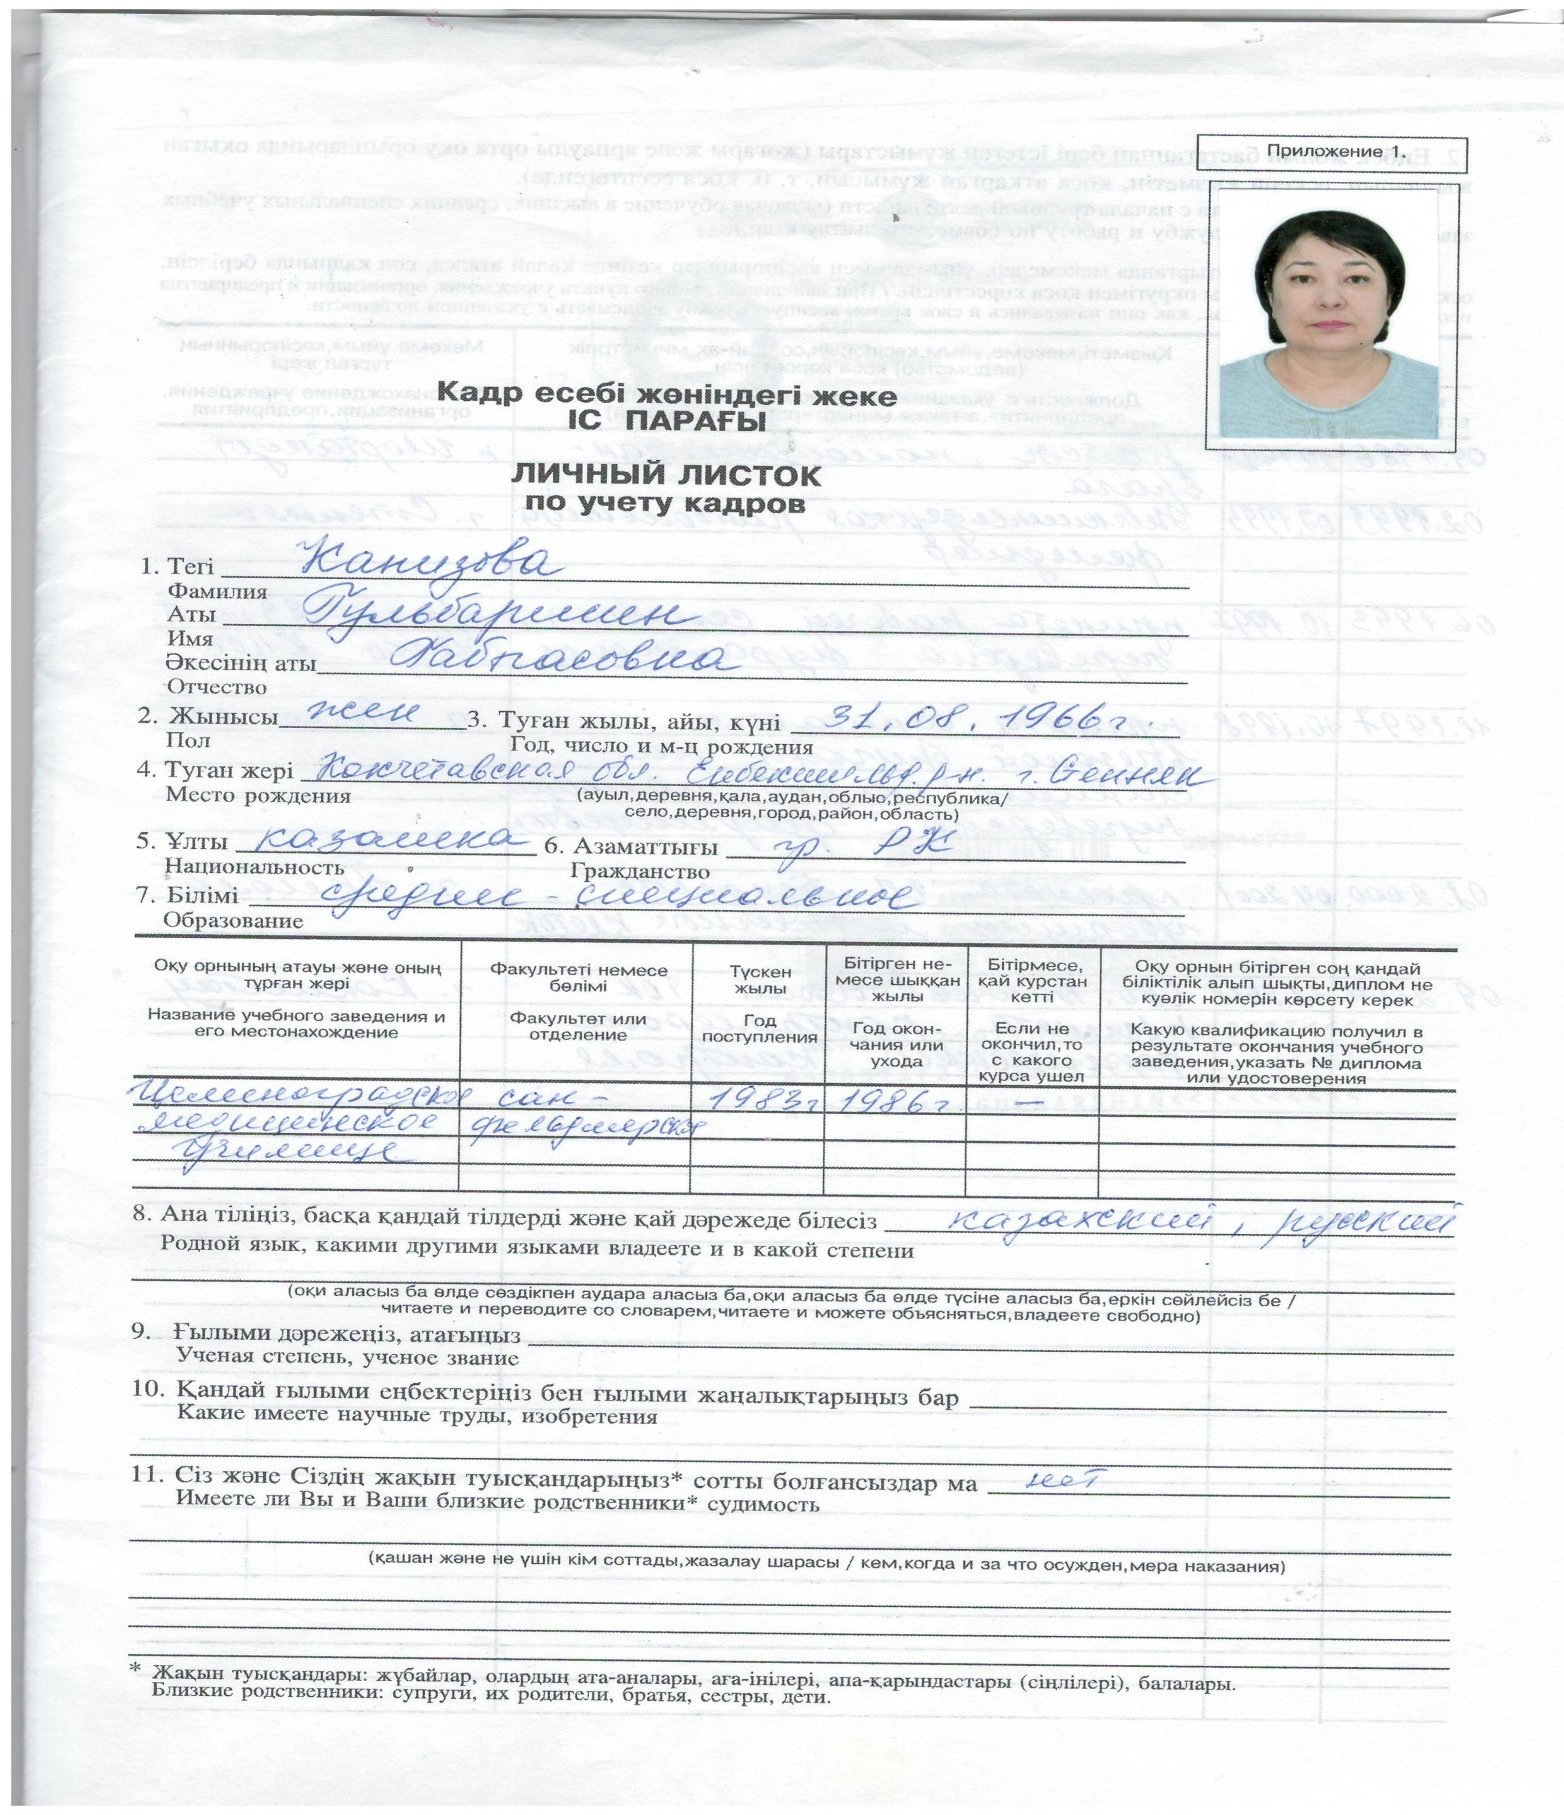 Приложение 1.
Кадр есебі жөніндегі жеке
ІС ПАРАҒЫ
ЛИЧНЫЙ ЛИСТОК
по учету кадров
1. Тегі Канизова
Фамилия
Аты Гульбаршин
Имя
Әкесінің аты Хабпасовна
Отчество
2. Жынысы жен 3. Туған жылы, айы, күні 31.08.1966г.
Пол Год, число и м-ц рождения
4. Туған жері Кокчетавская обл. Енбекшильд. р-н. г. Степняк
Место рождения (ауыл,деревня,қала,аудан,облыс,республика/
село,деревня,город,район,область)
5. Ұлты казашка 6. Азаматтығы гр. РК
Национальность Гражданство
7. Білімі средне - специальное
Образование
Оқу орнының атауы және оның
тұрған жері
Название учебного заведения и
его местонахождение
Факультеті немесе
бөлімі
Факультет или
отделение
Түскен
жылы
Год
поступления
Бітірген не-
месе шыққан
жылы
Год окон-
чания или
ухода
Бітірмесе,
қай курстан
кетті
Если не
окончил,то
с какого
курса ушел
Оқу орнын бітірген соң қандай
біліктілік алып шықты,диплом не
куәлік номерін көрсету керек
Какую квалификацию получил в
результате окончания учебного
заведения,указать № диплома
или удостоверения
Целиноградское сан - 1983г 1986г. —
медицинское фельдшерское
училище
8. Ана тіліңіз, басқа қандай тілдерді және қай дәрежеде білесіз казахский, русский
Родной язык, какими другими языками владеете и в какой степени
(оқи аласыз ба әлде сөздікпен аудара аласыз ба,оқи аласыз ба әлде түсіне аласыз ба,еркін сөйлейсіз бе /
читаете и переводите со словарем,читаете и можете объясняться,владеете свободно)
9. Ғылыми дәрежеңіз, атағыңыз
Ученая степень, ученое звание
10. Қандай ғылыми еңбектеріңіз бен ғылыми жаңалықтарыңыз бар
Какие имеете научные труды, изобретения
11. Сіз және Сіздің жақын туысқандарыңыз* сотты болғансыздар ма нет
Имеете ли Вы и Ваши близкие родственники* судимость
(қашан және не үшін кім соттады,жазалау шарасы / кем,когда и за что осужден,мера наказания)
* Жақын туысқандары: жұбайлар, олардың ата-аналары, аға-інілері, апа-қарындастары (сіңлілері), балалары.
Близкие родственники: супруги, их родители, братья, сестры, дети.